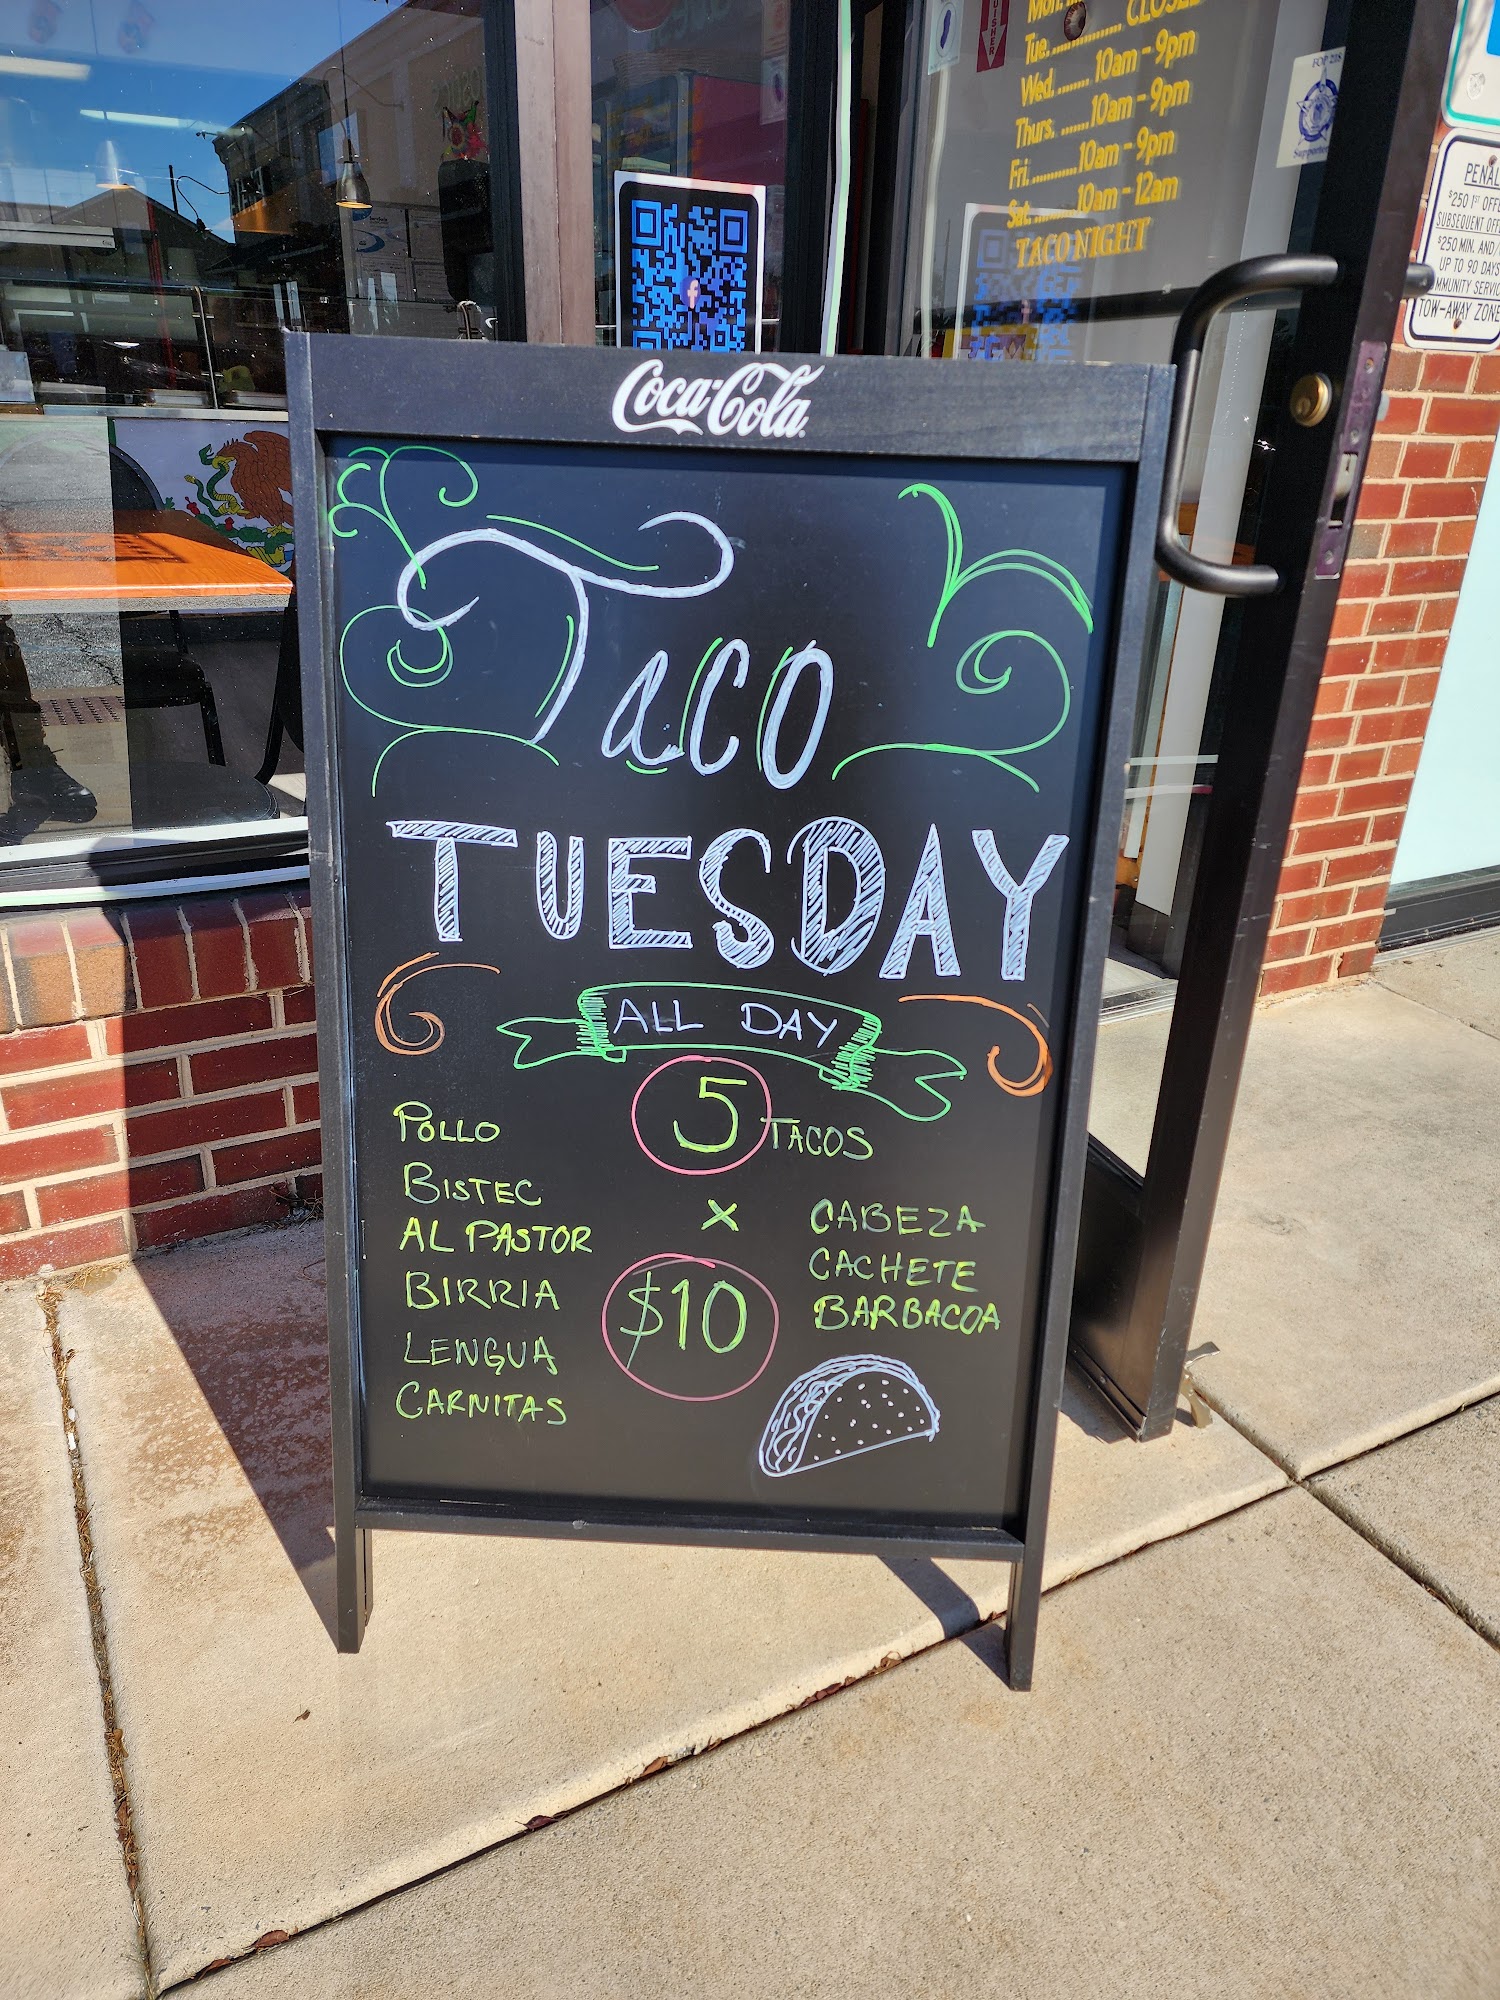 CLOSED
Tue.
Wed. 10am - 9pm
Thurs. 10am - 9pm
Fri. 10am - 9pm
Sat. 10am - 12am
TACO NIGHT
FOP 218
Supporter
PENAL
$250 1ST OFF
SUBSEQUENT OFF
$250 MIN. AND/
UP TO 90 DAYS
MMUNITY SERVIC
TOW-AWAY ZONE
Coca-Cola
Taco
TUESDAY
ALL DAY
5 TACOS
X
$10
POLLO
BISTEC
AL PASTOR
BIRRIA
LENGUA
CARNITAS
CABEZA
CACHETE
BARBACOA